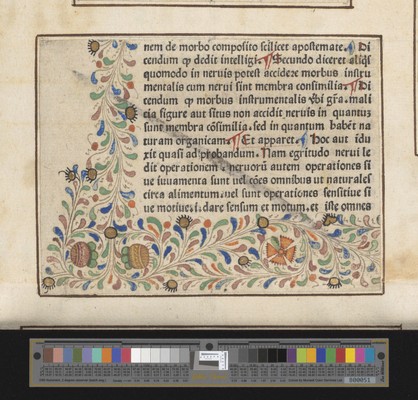 nem de morbo composito scilicet apostemate.¶ Di
cendum ꝙ dedit intelligi.¶ Secundo diceret aliqͥs
quomodo in neruis potest accidere morbus instru
mentalis cum nerui sint membra consimilia.¶ Di
cendum ꝙ morbus instrumentalis vbi gr̄a. mali
cia figure aut situs non accidit neruis in quantuꝫ
sunt membra cōsimilia. sed in quantum habēt na
turam organicam.¶ Et apparet.¶ Hoc aut idu
xit quasi ad probandum. Nam egritudo nerui le
dit operationem neruorū autem operationes si
ue iuuamenta sunt vel in omnibus vt naturales
circa alimentum. vel sunt operationes sensitiue si
ue motiue. i. dare sensum et motum. et iste omnes
000051